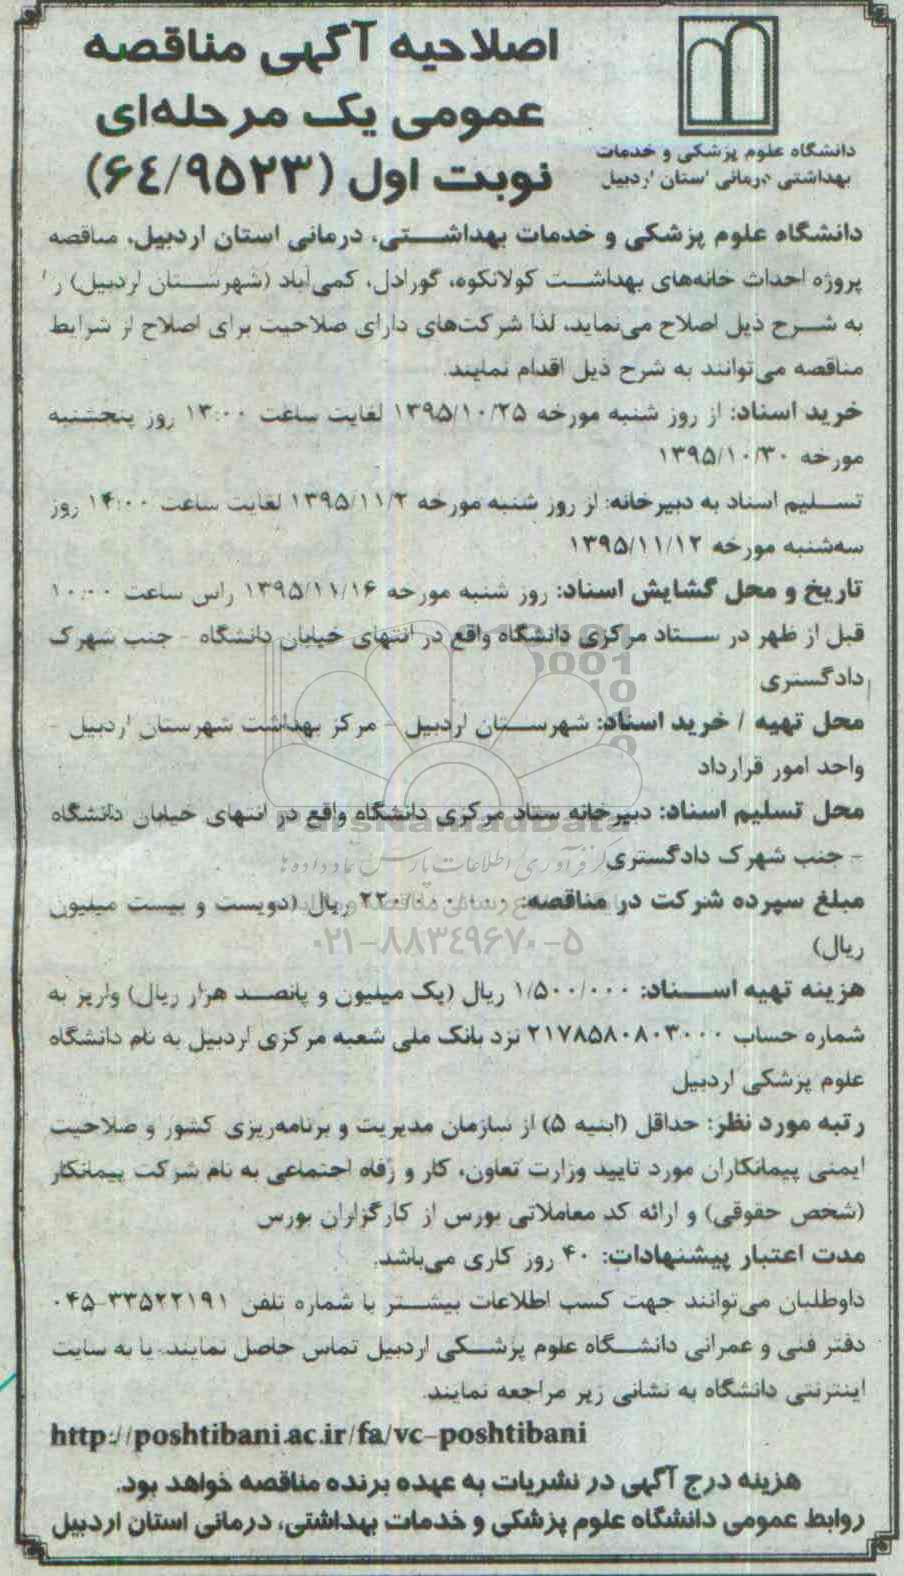 اصلاحیه آگهی مناقصه
عمومی یک مرحله‌ای
نوبت اول (۶۴/۹۵۲۳)
دانشگاه علوم پزشکی و خدمات
بهداشتی درمانی استان اردبیل
دانشگاه علوم پزشکی و خدمات بهداشتی، درمانی استان اردبیل، مناقصه
پروژه احداث خانه‌های بهداشت کولانکوه، گورادل، کمی‌آباد (شهرستان اردبیل) را
به شرح ذیل اصلاح می‌نماید، لذا شرکت‌های دارای صلاحیت برای اصلاح از شرایط
مناقصه می‌توانند به شرح ذیل اقدام نمایند.
خرید اسناد: از روز شنبه مورخه ۱۳۹۵/۱۰/۲۵ لغایت ساعت ۱۳:۰۰ روز پنجشنبه
مورخه ۱۳۹۵/۱۰/۳۰
تسلیم اسناد به دبیرخانه: از روز شنبه مورخه ۱۳۹۵/۱۱/۲ لغایت ساعت ۱۴:۰۰ روز
سه‌شنبه مورخه ۱۳۹۵/۱۱/۱۲
تاریخ و محل گشایش اسناد: روز شنبه مورخه ۱۳۹۵/۱۱/۱۶ راس ساعت ۱۰:۰۰
قبل از ظهر در ستاد مرکزی دانشگاه واقع در انتهای خیابان دانشگاه - جنب شهرک
دادگستری
محل تهیه / خرید اسناد: شهرستان اردبیل - مرکز بهداشت شهرستان اردبیل -
واحد امور قرارداد
محل تسلیم اسناد: دبیرخانه ستاد مرکزی دانشگاه واقع در انتهای خیابان دانشگاه
ParsNamadData
- جنب شهرک دادگستری
مرکز فرآوری اطلاعات پارس نماد داده‌ها
مبلغ سپرده شرکت در مناقصه: ۲۲۰/۰۰۰/۰۰۰ ریال (دویست و بیست میلیون
ریال)
۰۲۱-۸۸۳۴۹۶۷۰-۵
هزینه تهیه اسناد: ۱/۵۰۰/۰۰۰ ریال (یک میلیون و پانصد هزار ریال) واریز به
شماره حساب ۲۱۷۸۵۸۰۸۰۳۰۰۰ نزد بانک ملی شعبه مرکزی اردبیل به نام دانشگاه
علوم پزشکی اردبیل
رتبه مورد نظر: حداقل (ابنیه ۵) از سازمان مدیریت و برنامه‌ریزی کشور و صلاحیت
ایمنی پیمانکاران مورد تایید وزارت تعاون، کار و رفاه اجتماعی به نام شرکت پیمانکار
(شخص حقوقی) و ارائه کد معاملاتی بورس از کارگزاران بورس
مدت اعتبار پیشنهادات: ۴۰ روز کاری می‌باشد.
داوطلبان می‌توانند جهت کسب اطلاعات بیشتر با شماره تلفن ۰۴۵-۳۳۵۲۲۱۹۱
دفتر فنی و عمرانی دانشگاه علوم پزشکی اردبیل تماس حاصل نمایند. یا به سایت
اینترنتی دانشگاه به نشانی زیر مراجعه نمایند.
http://poshtibani.ac.ir/fa/vc-poshtibani
هزینه درج آگهی در نشریات به عهده برنده مناقصه خواهد بود.
روابط عمومی دانشگاه علوم پزشکی و خدمات بهداشتی، درمانی استان اردبیل